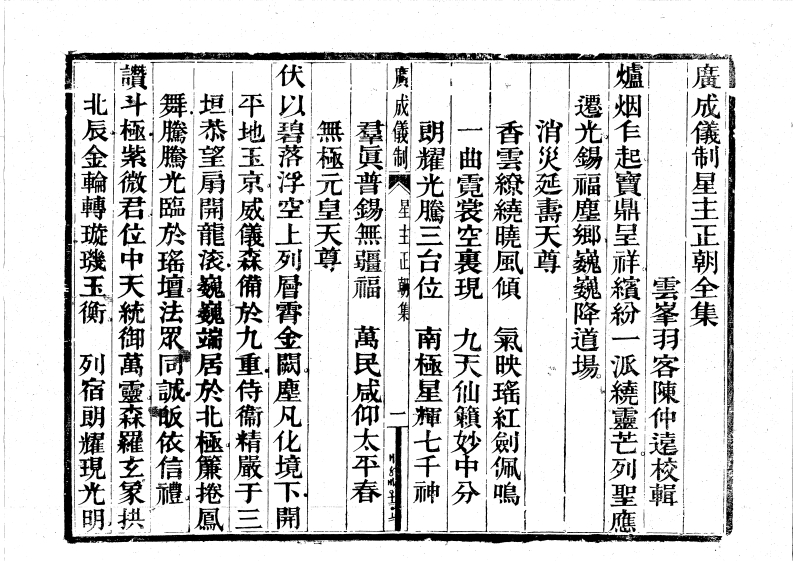 廣成儀制星主正朝全集
雲峯羽客陳仲遠校輯
爐烟乍起寶鼎呈祥繽紛一派繞靈芒列聖應
遷光錫福塵鄉巍巍降道場
消災延壽天尊
香雲繚繞曉風傾　氣映瑤紅劍佩鳴
一曲霓裳空裏現　九天仙籟妙中分
朗耀光騰三台位　南極星輝七千神
廣成儀制　星主正朝集　一
羣眞普錫無疆福　萬民咸仰太平春
無極元皇天尊
伏以碧落浮空上列層霄金闕塵凡化境下開
平地玉京威儀森備於九重侍衞精嚴于三
垣恭望扇開龍滚巍巍端居於北極簾捲鳳
舞騰騰光臨於瑤壇法眾同誠皈依信禮
讚斗極紫微君位中天統御萬靈森羅玄象拱
北辰金輪轉璇璣玉衡　列宿朗耀現光明